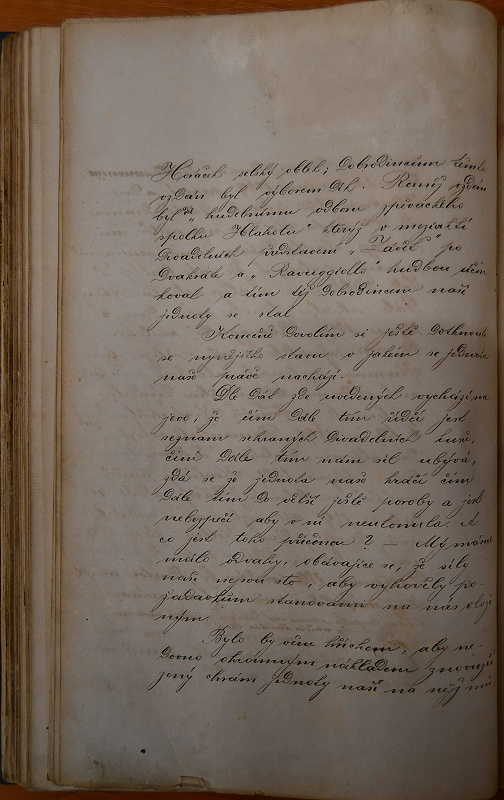 Horáček selský oblek; Dobrodincům těmto
vzdán byl výborem dík. Rovněž vzdán
byl dík hudebnímu odboru zpěváckého
spolku "Hlaholu" který v meziaktí
Divadelních představení "Záveť" po
Dvakráte a "Ravuggiollo" hudbou účin
koval a tím též Dobrodincem naší
jednoty se stal
Konečně Dovolím si ještě Dotknouti
se nynějšího stavu v jakém se jednota
naše právě nachází.
Dle Dát zde uvedených vychází na
jevo, že čím Dále tím řidčí jest
seznam sehraných Divadelních kusů,
čím Dále tím nám sil ubývá,
zdá se že jednota naše kráčí čím
Dále tím Do větší ještě poroby a jest
nebezpečí aby v ní neutonula. A
co jest toho příčinou? — My máme
málo odvahy, obávajíce se, že síly
naše nejsou sto, aby vyhověly po-
žadavkům stanovami na nás vlože
ným.
Bylo by věru hříchem, aby ne-
Dávno ohromným nákladem znovuzří
zený chrám jednoty naší na nějž mů